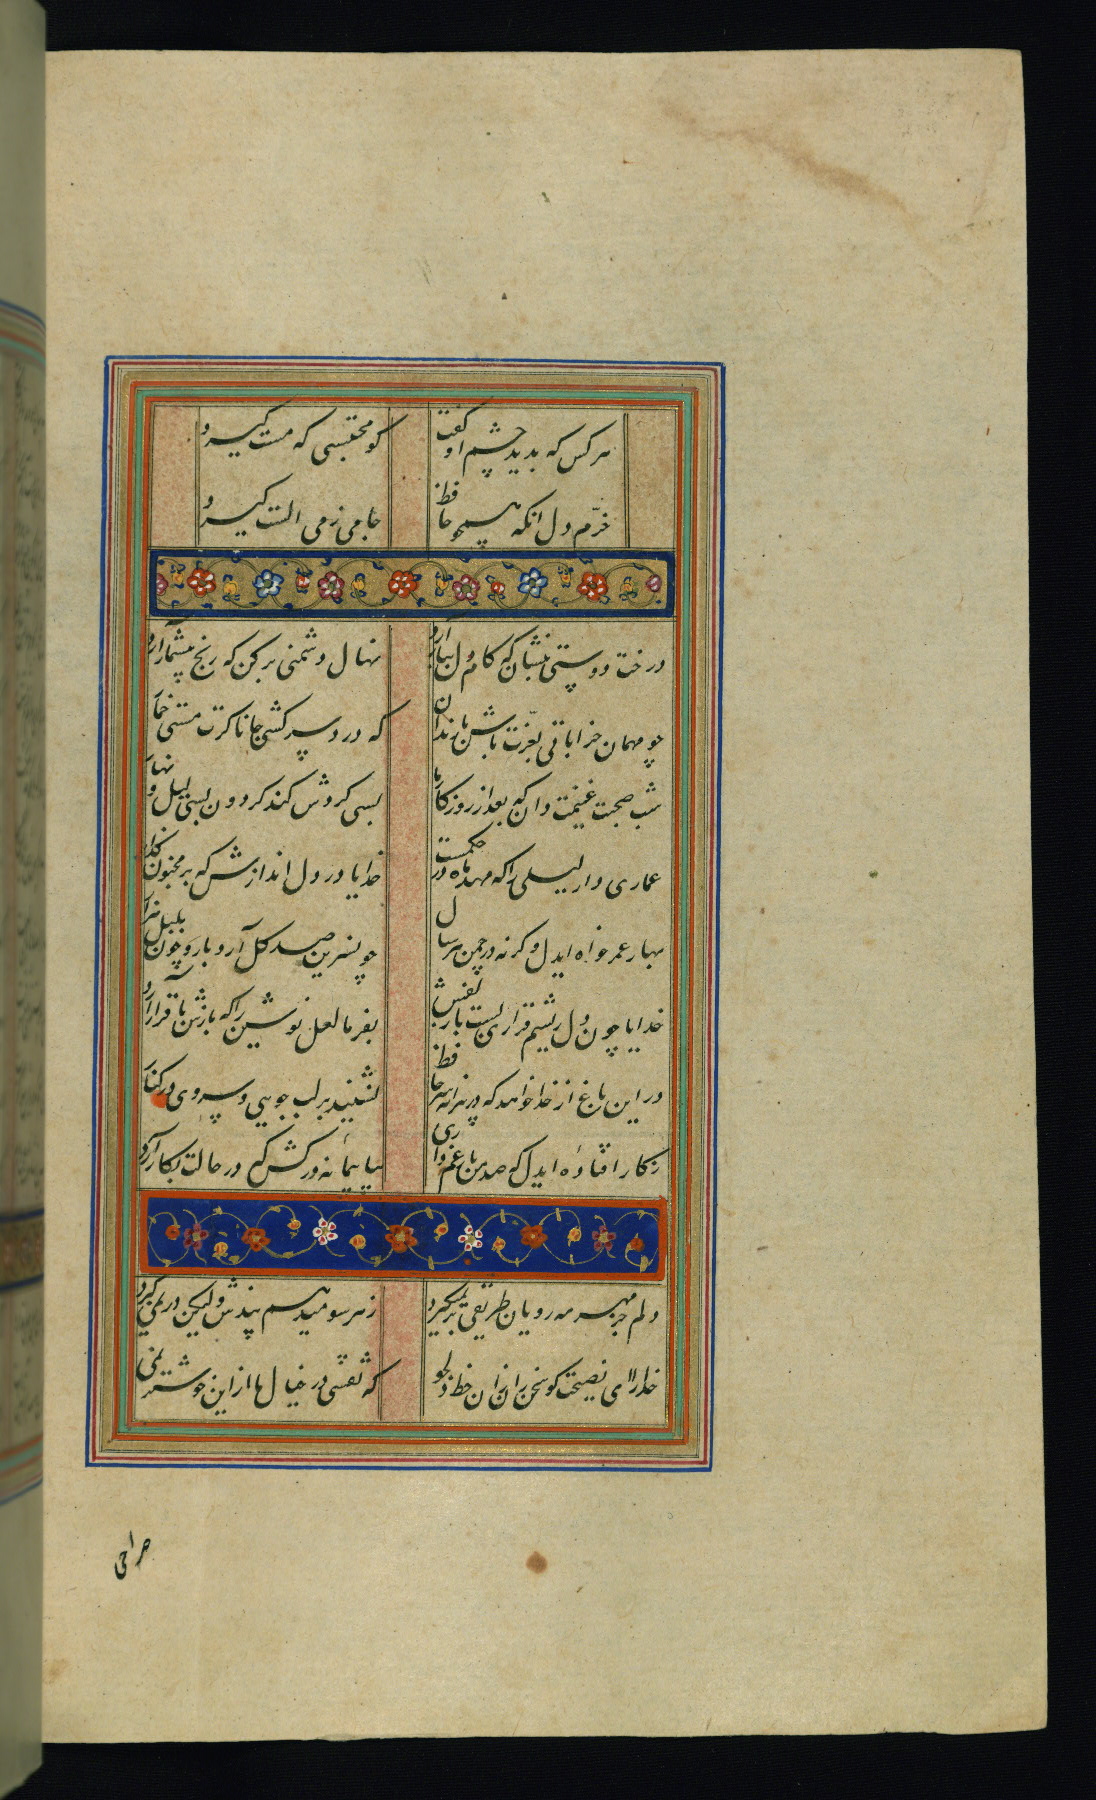 هر کس که بدید چشم او گفت
کو محتسبی که مست گیرد
خرّم دل انکه همچو حافظ
جامی ز می الست گیرد
درخت دوستی بنشان که کام دل ببار آرد
نهال دشمنی برکن که رنج بیشمار آرد
چو مهمان خراباتی بعزّت باش با رندان
که درد سر کشی جانا کرت مستی خمار
شب صحبت غنیمت دان که بعد از روزکار ما
بسی کردش کند کردون بسی لیل و نهار
عماری دار لیلی را که مهد ماه در حکمست
خدایا در دل اندازش که بر مجنون کذار
بهار عمر خواه ایدل وکرنه در چمن هر سال
چو نسرین صد کل آرد بار و چون بلبل هزار
خدایا چون دل ریشم قراری بست با زلفش
بفرما لعل نوشین را که بازش با قرار آرد
در این باغ از خدا خواهد که پیرانه سر حافظ
نشیند بر لب جویی و سروی در کنار
ز کار افتاده ایدل که صد من بار غم داری
بیا پیمانه درکش که در حالت بکار آرد
دلم جز مهر مه رویان طریقی بر نمیکیرد
ز هر سو میدهم پندش ولیکن در نمی گیرد
خدا را ای نصیحت کو سخن ران از ان خط دلجو
که نقشی در خیال ما از این خوشتر نمی
صراحی